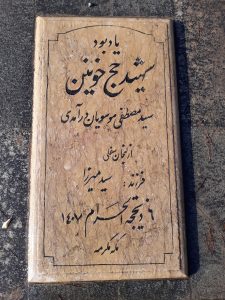 یادبود
شهید حج خونین
سید مصطفی موسویان درآمدی
از نجمان سفلی
فرزند : سید میرزا
۶ ذیحجه الحرام ۱۴۰۷
مکه مکرمه